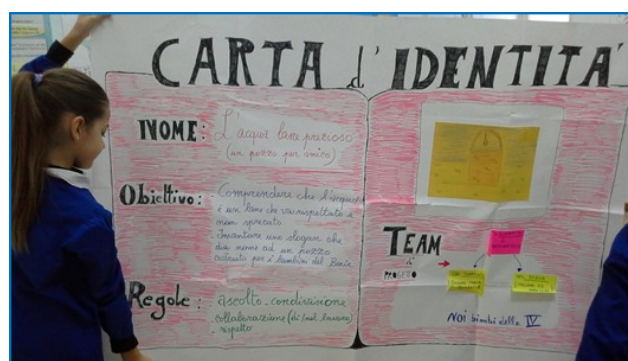 CARTA d'IDENTITA'
NOME:
L'acqua bene prezioso
(un pozzo per amico)
Obiettivo:
- Comprendere che l'acqua
è un bene che va rispettato e
non sprecato
- Inventare uno slogan che
dia nome ad un pozzo
costruito per i bambini del Benin
Regole:
ascolto - condivisione
collaborazione (di/nel lavoro)
- rispetto
TEAM
di
PROGETTO
Noi bimbi della IV